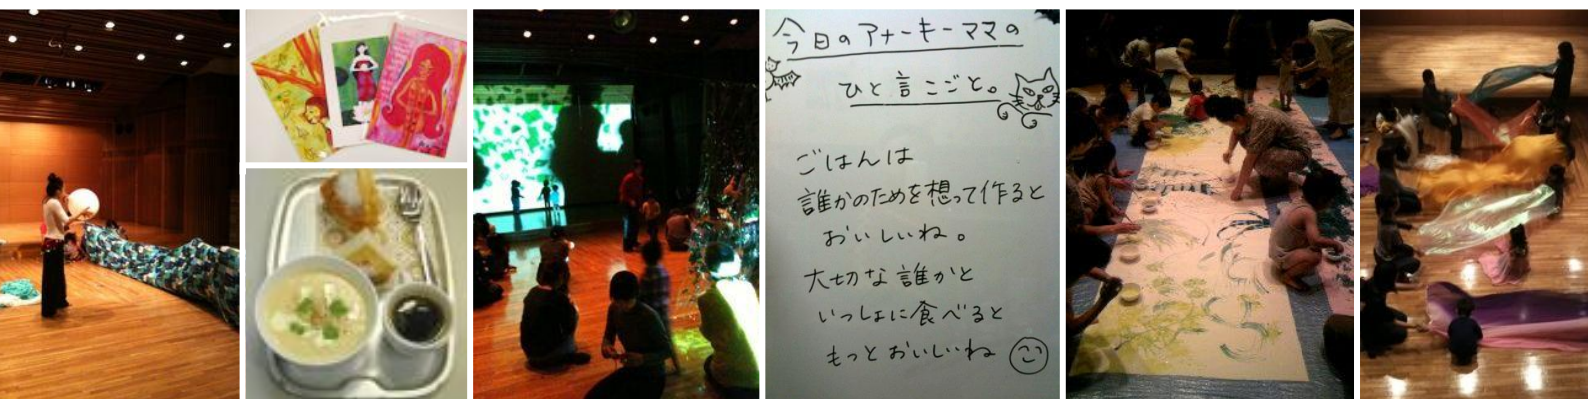 今日のアナーキーママの
ひと言こごと。
ごはんは
誰かのためを想って作ると
おいしいね。
大切な誰かと
いっしょに食べると
もっとおいしいね